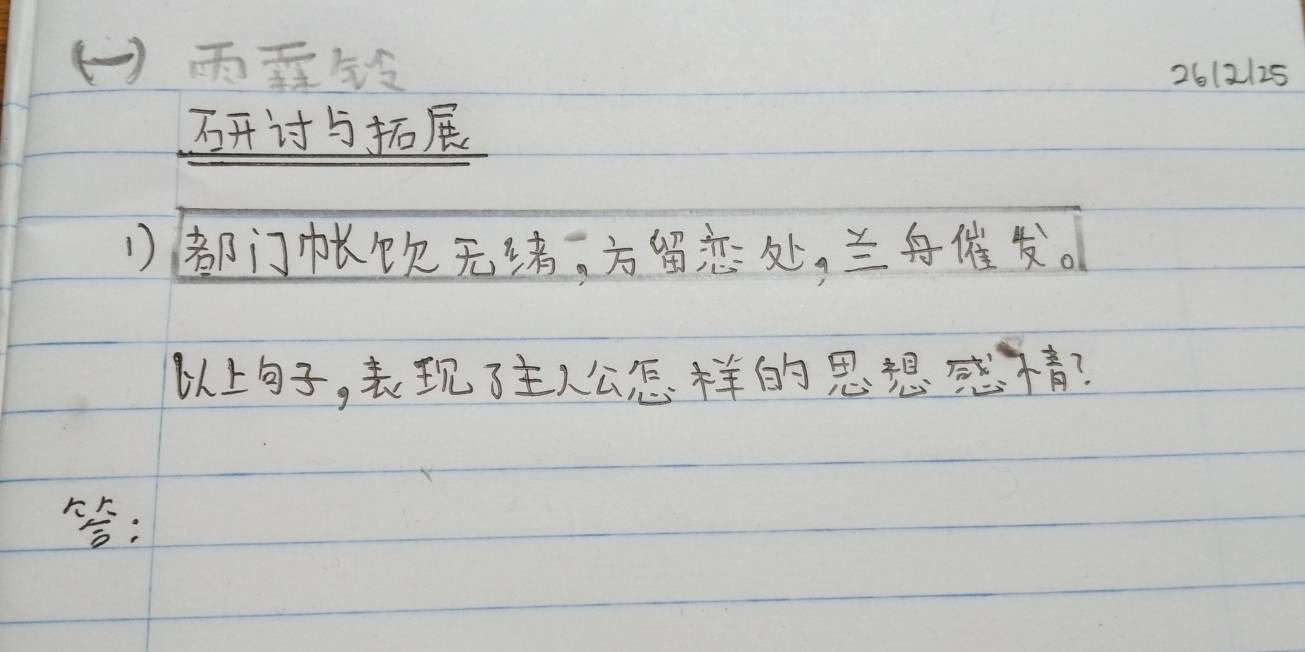 (一) 雨霖铃
26/2/25
研讨与拓展
1) 都门帐饮无绪,方留恋处,兰舟催发。
以上句子,表现了主人公怎样的思想感情?
答: